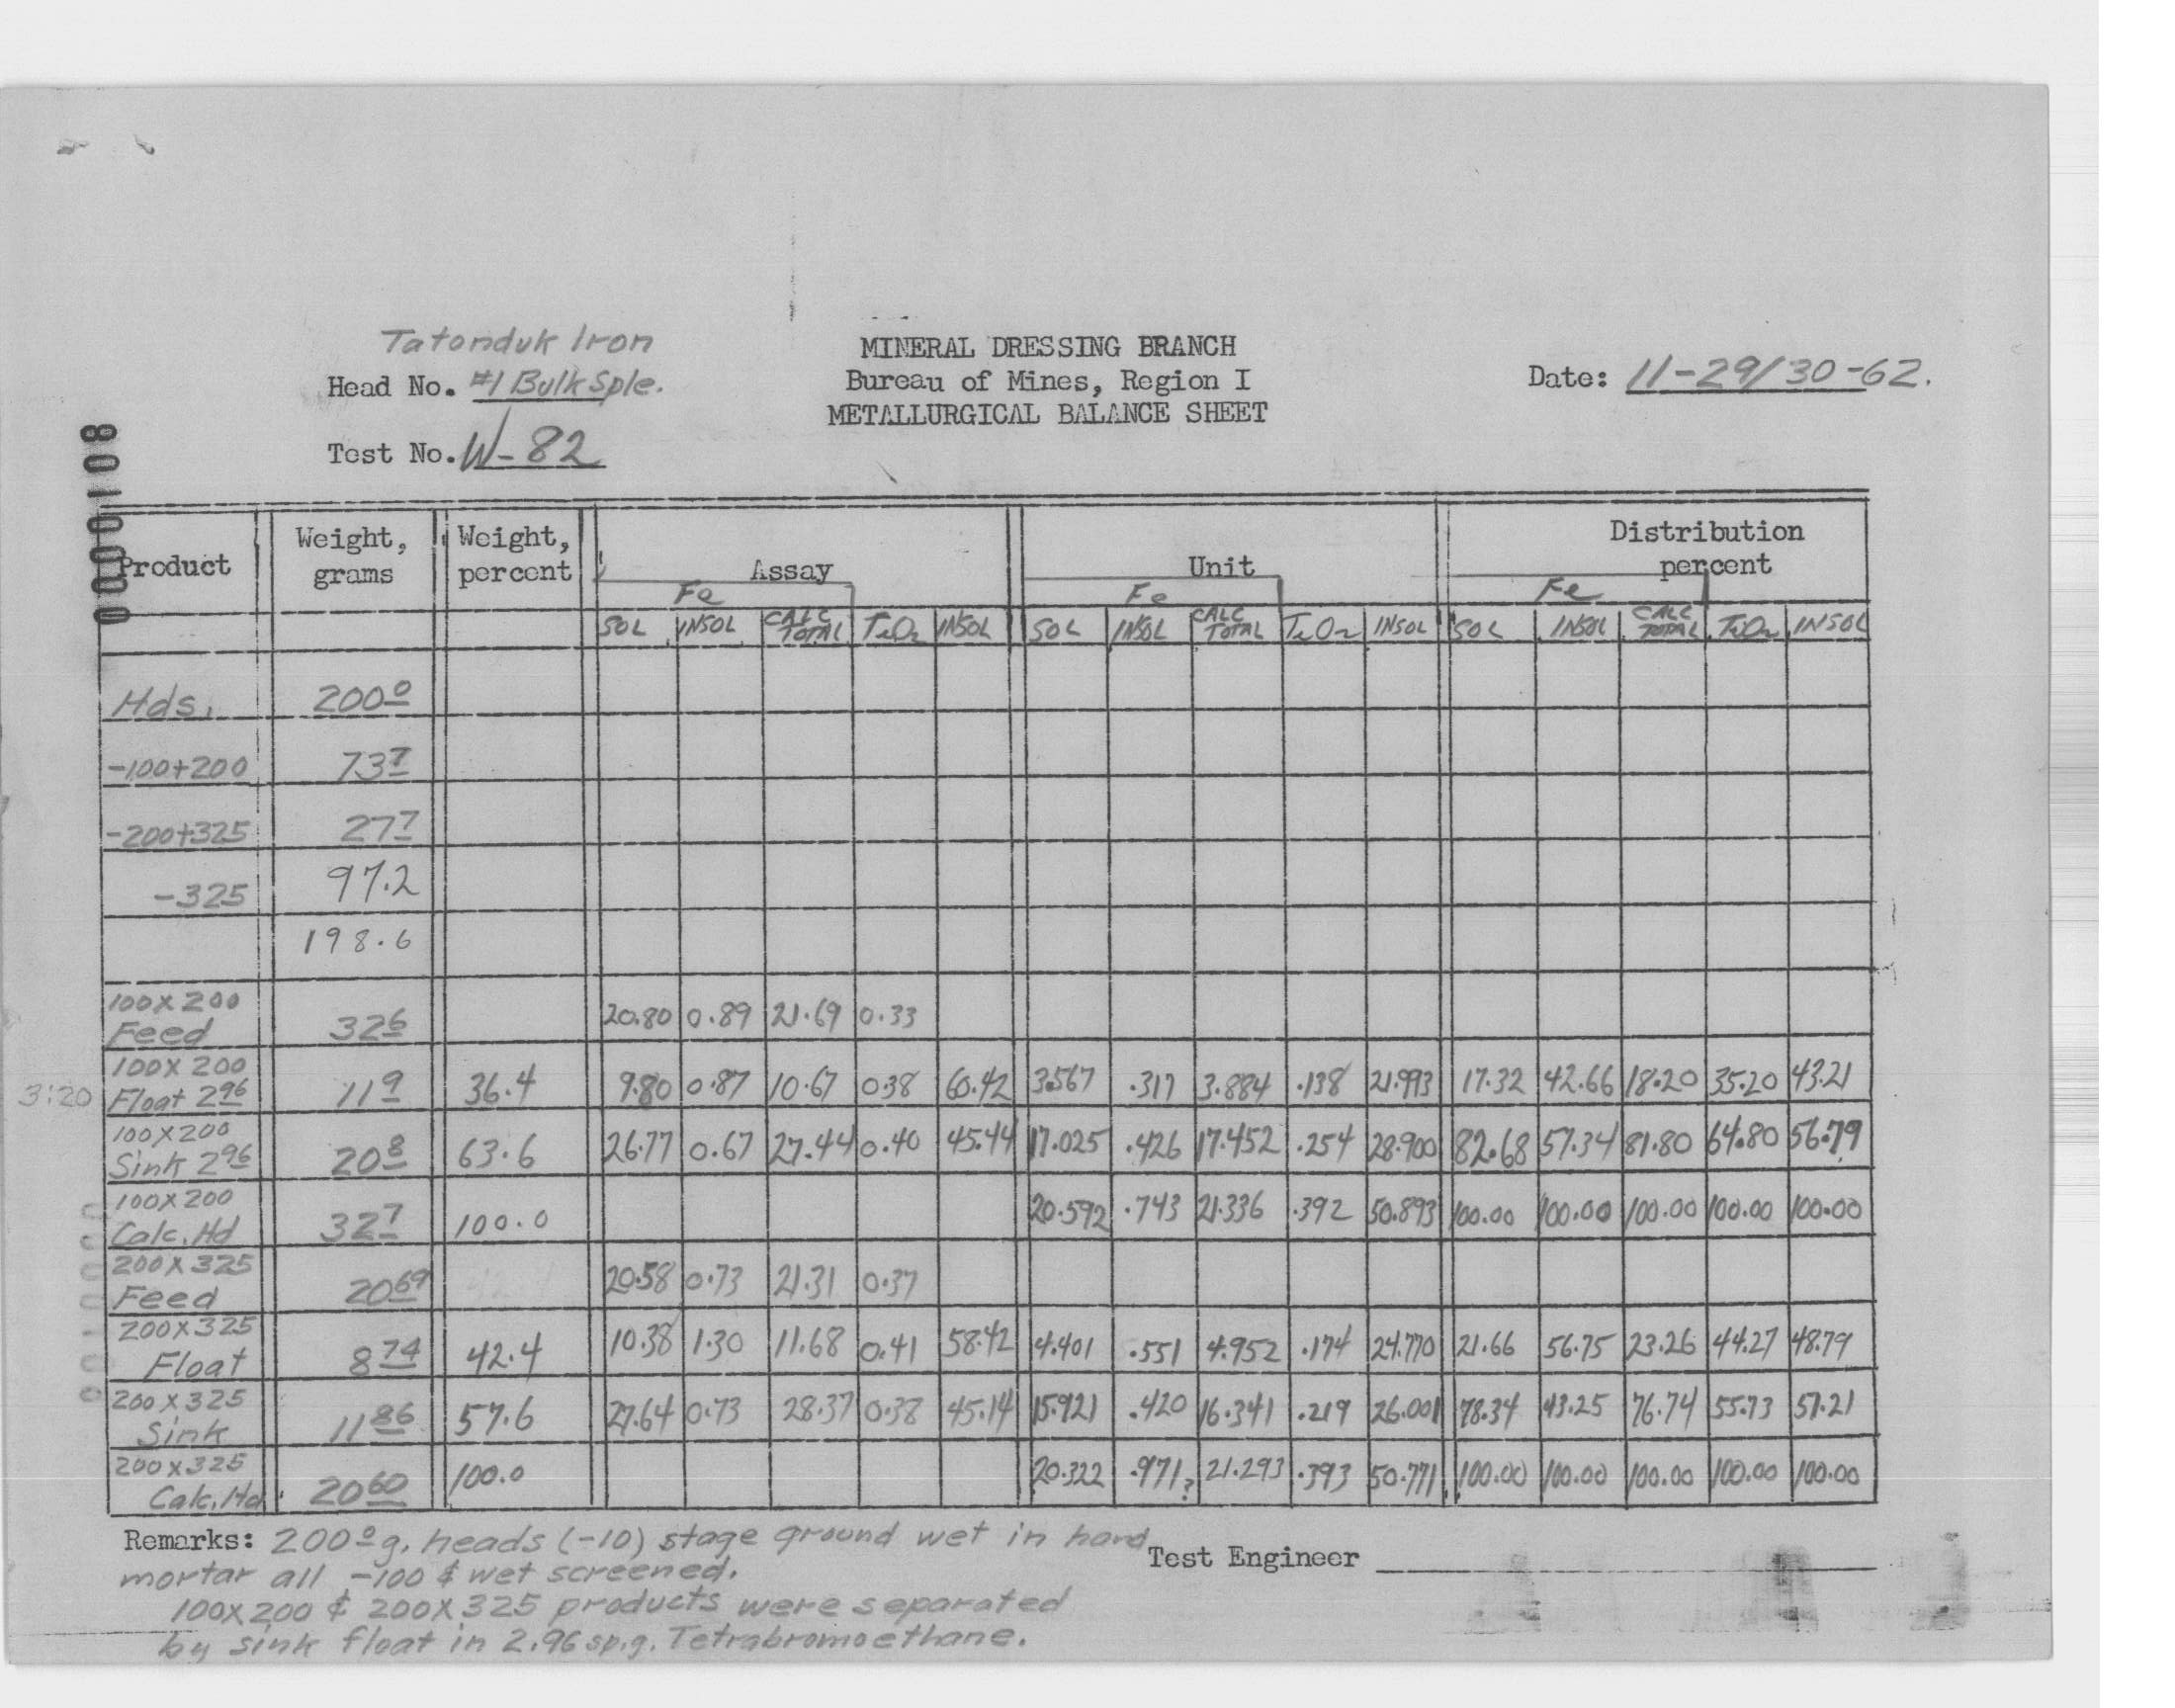 Tatonduk Iron
Head No. #1 Bulk Sple.
Test No. W-82
MINERAL DRESSING BRANCH
Bureau of Mines, Region I
METALLURGICAL BALANCE SHEET
Date: 11-29/30-62.
0000108
Product | Weight, grams | Weight, percent | Assay | Unit | Distribution percent
Fe | Fe | Fe
SOL | INSOL | CALC TOTAL | TiO2 | INSOL | SOL | INSOL | CALC TOTAL | TiO2 | INSOL | SOL | INSOL | CALC TOTAL | TiO2 | INSOL
Hds. | 200 0
-100+200 | 73 7
-200+325 | 27 7
-325 | 97.2
198.6
100X200 Feed | 32 6 | 20.80 | 0.89 | 21.69 | 0.33
3:20 | 100X200 Float 2 96 | 11 9 | 36.4 | 9.80 | 0.87 | 10.67 | 0.38 | 60.42 | 3.567 | .317 | 3.884 | .138 | 21.993 | 17.32 | 42.66 | 18.20 | 35.20 | 43.21
100X200 Sink 2 96 | 20 8 | 63.6 | 26.77 | 0.67 | 27.44 | 0.40 | 45.44 | 17.025 | .426 | 17.452 | .254 | 28.900 | 82.68 | 57.34 | 81.80 | 64.80 | 56.79
100X200 Calc. Hd | 32 7 | 100.0 | 20.592 | .743 | 21.336 | .392 | 50.893 | 100.00 | 100.00 | 100.00 | 100.00 | 100.00
200X325 Feed | 20 69 | 20.58 | 0.73 | 21.31 | 0.37
200X325 Float | 8 74 | 42.4 | 10.38 | 1.30 | 11.68 | 0.41 | 58.42 | 4.401 | .551 | 4.952 | .174 | 24.770 | 21.66 | 56.75 | 23.26 | 44.27 | 48.79
200X325 Sink | 11 86 | 57.6 | 27.64 | 0.73 | 28.37 | 0.38 | 45.14 | 15.921 | .420 | 16.341 | .219 | 26.001 | 78.34 | 43.25 | 76.74 | 55.73 | 51.21
200X325 Calc. Hd. | 20 60 | 100.0 | 20.322 | .971? | 21.293 | .393 | 50.771 | 100.00 | 100.00 | 100.00 | 100.00 | 100.00
Remarks: 200 0 g. heads (-10) stage ground wet in hand
mortar all -100 & wet screened.
100X200 & 200X325 products were separated
by sink float in 2.96 sp.g. Tetrabromoethane.
Test Engineer